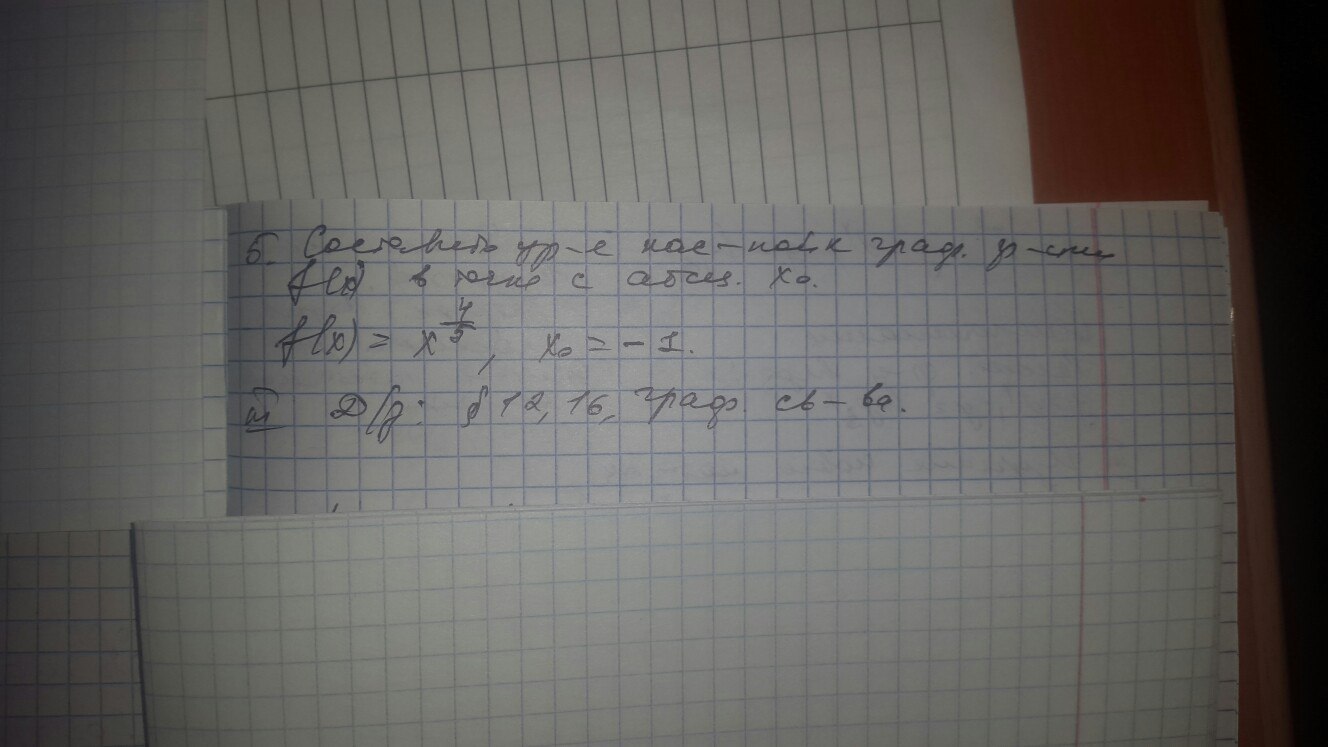 5. Составить ур-е кас-ной к граф. ф-ции
f(x) в точке с абсц. x₀.
f(x) = x^(4/5), x₀ = -1.
Д/з: § 12, 16, граф. св-ва.